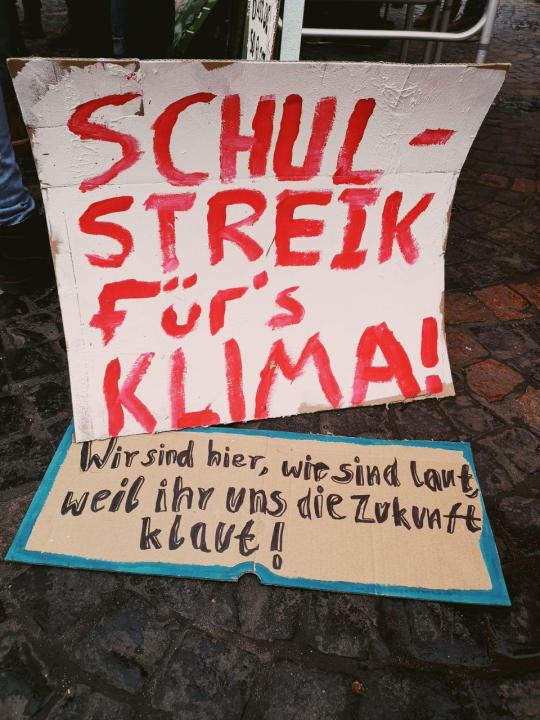 SCHUL-
STREIK
Für's
KLIMA!
Wir sind hier, wir sind laut,
weil ihr uns die Zukunft
klaut!